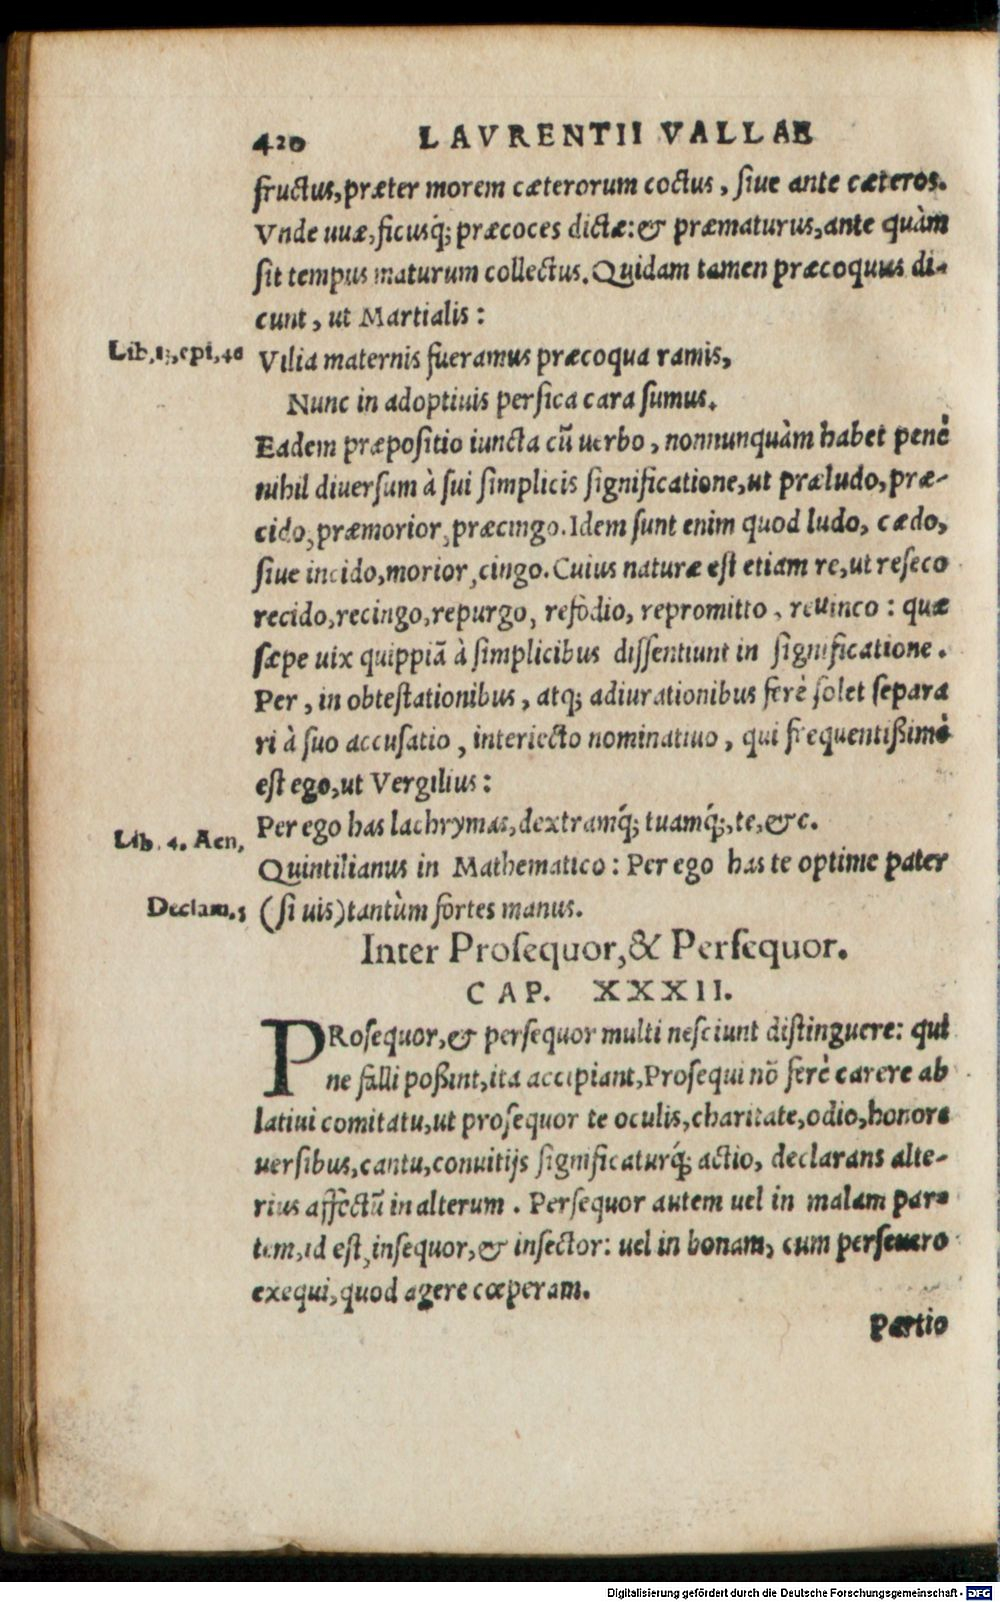 420 LAVRENTII VALLAE
fructus, præter morem cæterorum coctus, siue ante cæteros.
Vnde uuæ, ficusq́; præcoces dictæ: & præmaturus, ante quàm
sit tempus maturum collectus. Quidam tamen præcoquus di-
cunt, ut Martialis:
Lib.13.epi.46
Vilia maternis fueramus præcoqua ramis,
Nunc in adoptiuis persica cara sumus.
Eadem præpositio iuncta cũ uerbo, nonnunquàm habet penè
nihil diuersum à sui simplicis significatione, ut præludo, præ-
cido, præmorior, præcingo. Idem sunt enim quod ludo, cædo,
siue incido, morior, cingo. Cuius naturæ est etiam re, ut reseco
recido, recingo, repurgo, refodio, repromitto, reuinco: quæ
sæpe uix quippiã à simplicibus dissentiunt in significatione.
Per, in obtestationibus, atq; adiurationibus ferè solet separa
ri à suo accusatio, interiecto nominatiuo, qui frequentißimè
est ego, ut Vergilius:
Lib. 4. Aen,
Per ego has lachrymas, dextramq́; tuamq́;, te, &c.
Quintilianus in Mathematico: Per ego has te optime pater
Declam.5
(si uis) tantùm fortes manus.
Inter Prosequor, & Persequor.
CAP. XXXII.
PRosequor, & persequor multi nesciunt distinguere: qui
ne falli poßint, ita accipiant, Prosequi nõ ferè carere ab
latiui comitatu, ut prosequor te oculis, charitate, odio, honore
uersibus, cantu, conuitijs significaturq́; actio, declarans alte-
rius affectũ in alterum. Persequor autem uel in malam par-
tem, id est, insequor, & insector: uel in bonam, cum perseuero
exequi, quod agere cœperam.
Partio
Digitalisierung gefördert durch die Deutsche Forschungsgemeinschaft - DFG